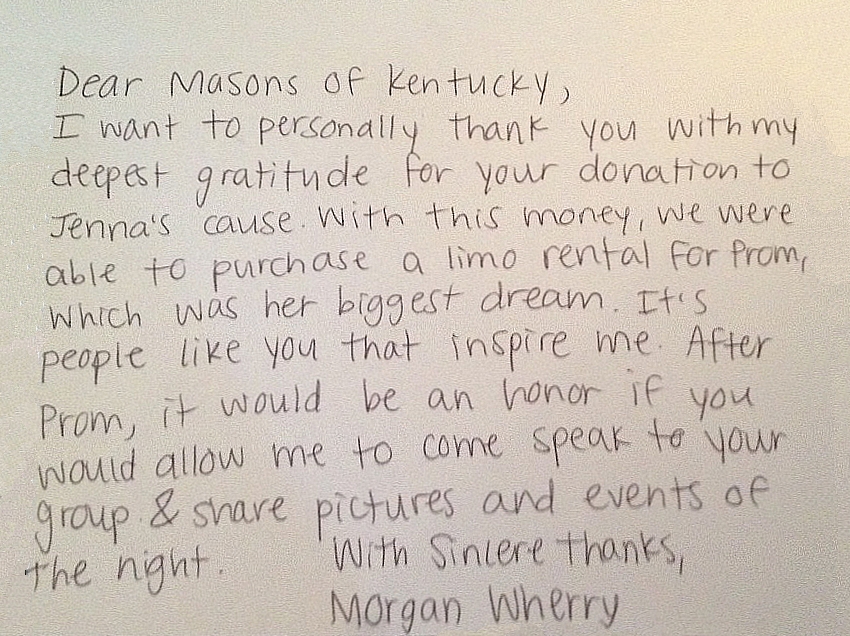 Dear Masons of Kentucky,
I want to personally thank you with my
deepest gratitude for your donation to
Jenna's cause. With this money, we were
able to purchase a limo rental for Prom,
which was her biggest dream. It's
people like you that inspire me. After
Prom, it would be an honor if you
would allow me to come speak to your
group & share pictures and events of
the night. With Sincere thanks,
Morgan Wherry